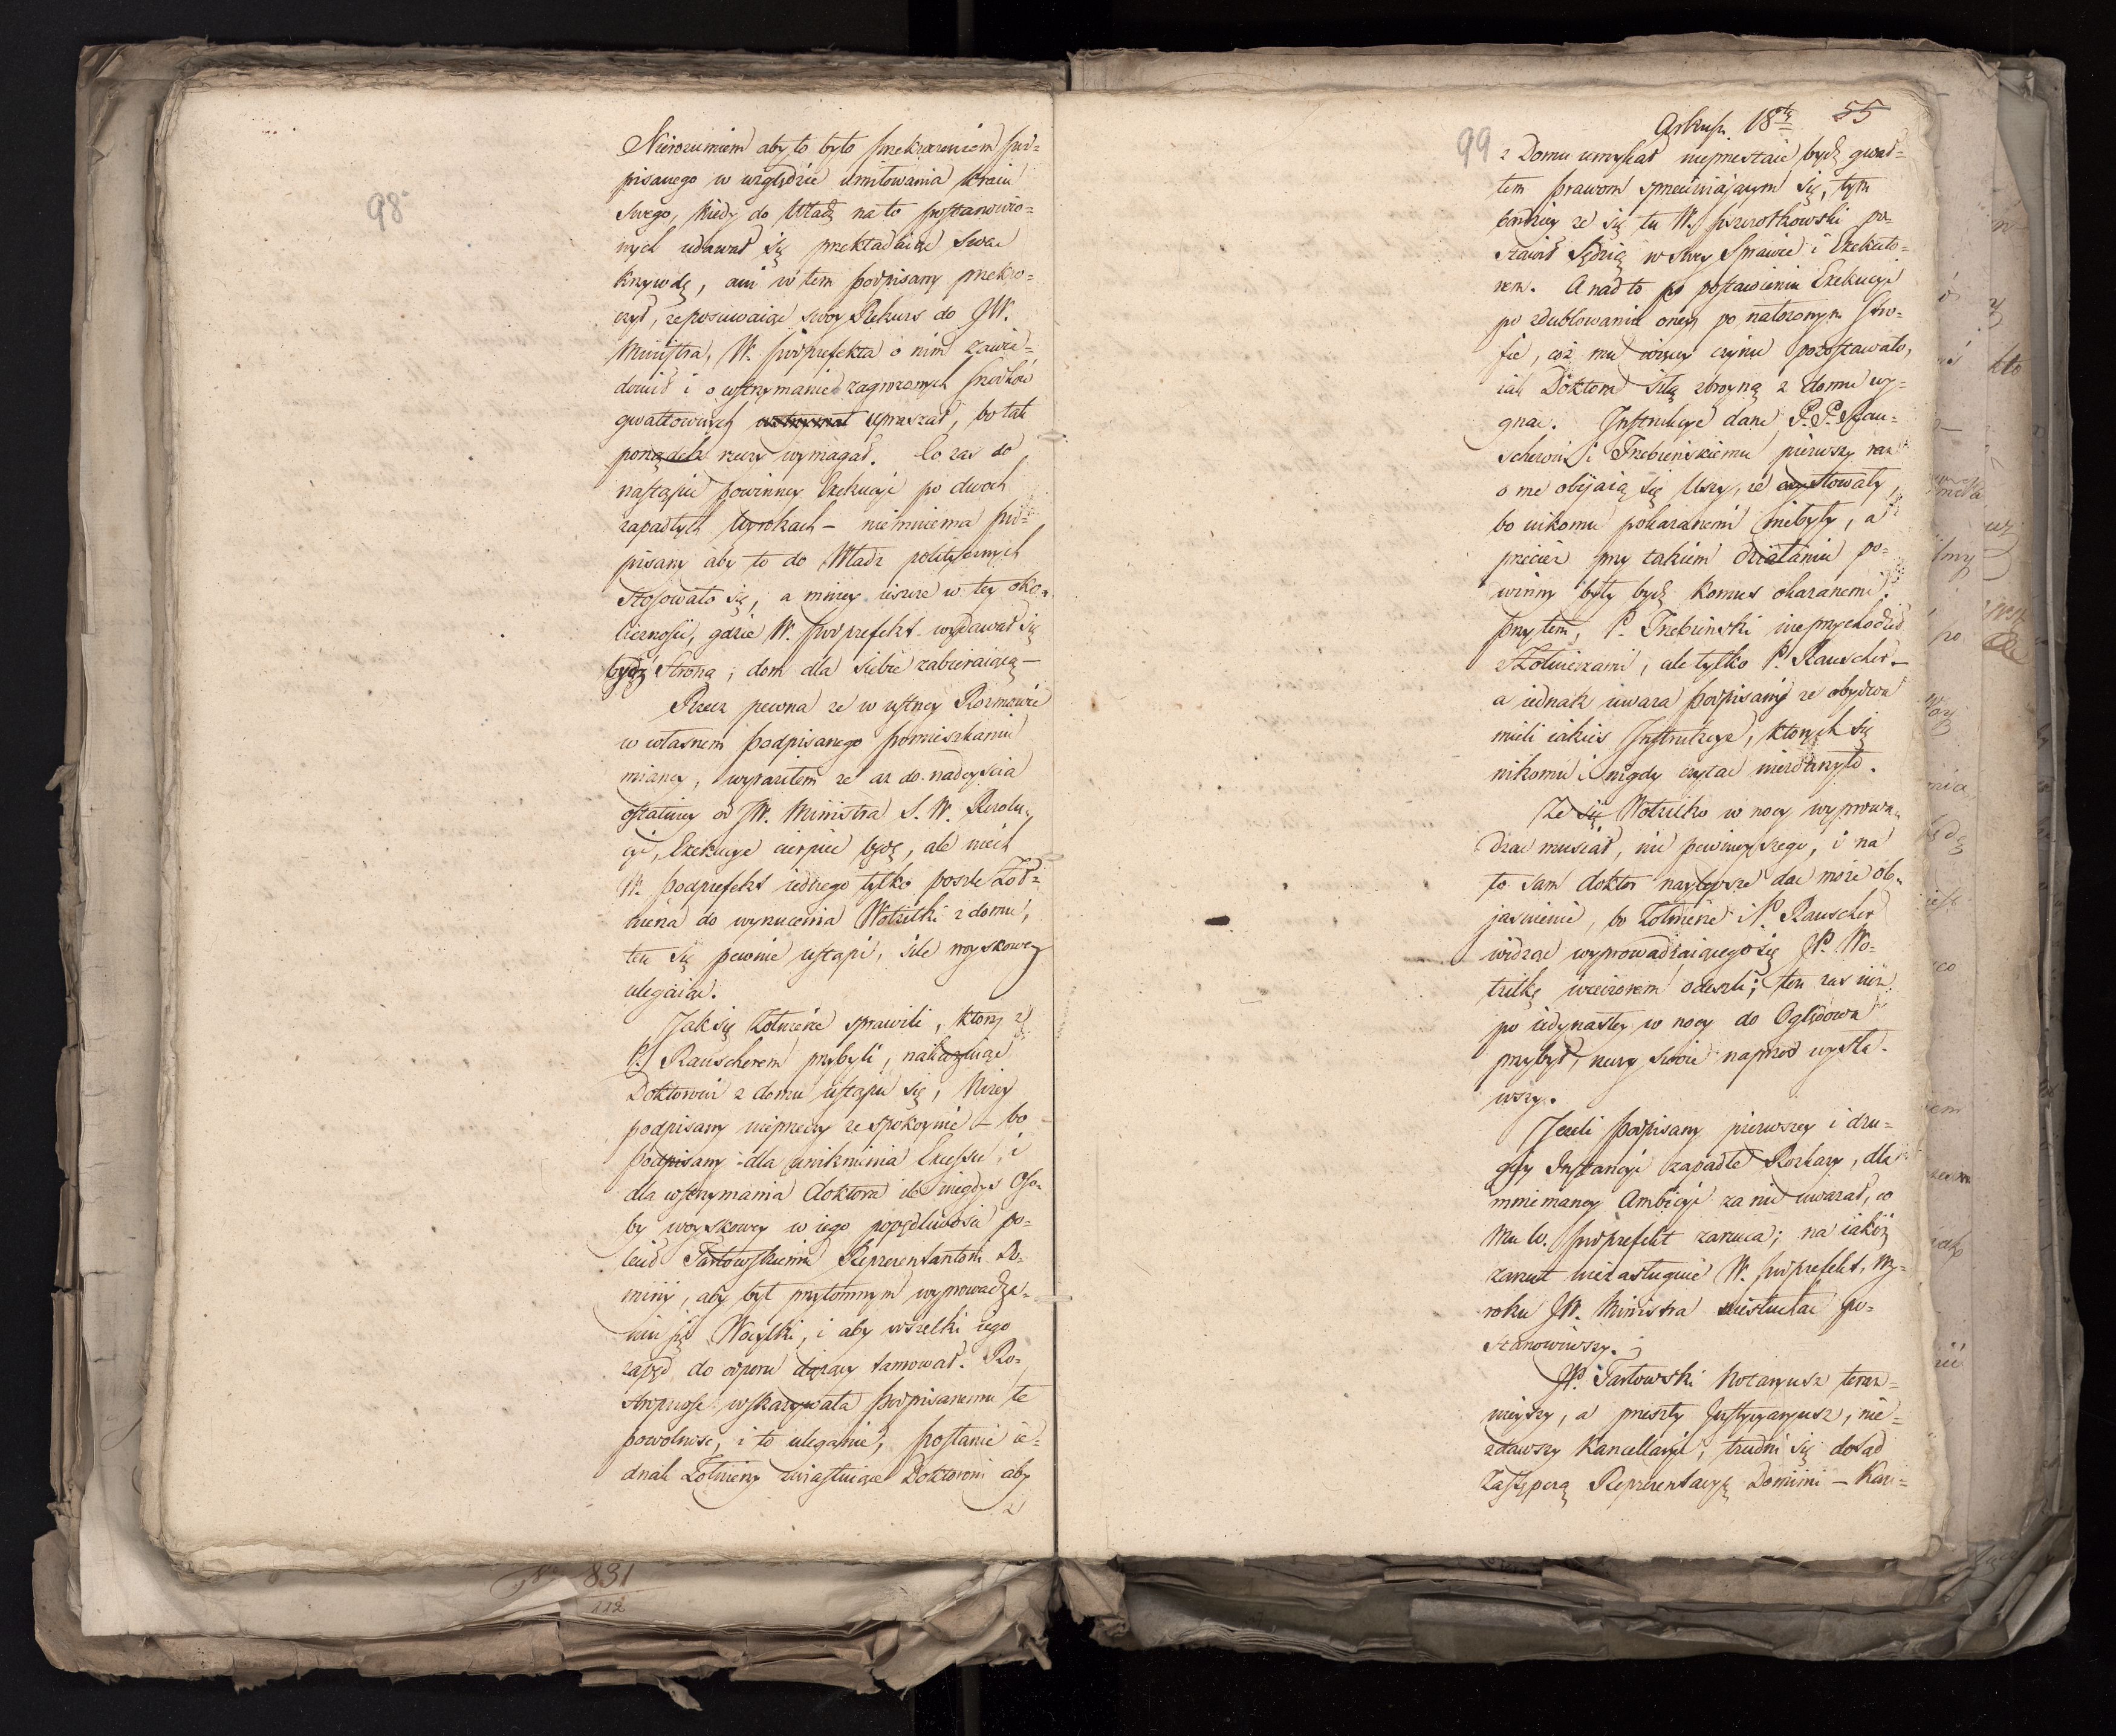 98
Nierozumiem aby to było przekroczeniem pod=
pisanego w względzie umiłowania kraiu
Swego, kiedy do Władz na to postanowio=
nych udawał się przekładaiąc swą
krzywdę, ani w tem podpisany przekro=
czył, że posuwaiąc swoy Rekurs do JW.
Ministra, W. podprefekta o nim zawia=
domił i o wstrzymanie zagrożonych środków
gwałtownych upraszał, bo tak
porządek rzeczy wymagał. Co zas do
nastąpić powinney Exekucyi po dwoch
zapadłych Wyrokach – niemniema pod=
pisany aby to do Władz politycznych
stosowało się, a mniey ieszcze w tey oko=
liczności, gdzie W. podprefekt wydawał się
bydź Stroną, dom dla siebie zabieraiącą –
Rzecz pewna ze w ustney Rozmowie
w własnem podpisanego pomieszkaniu
mianey, wyraziłem ze az do nadeyścia
ostatniey od JW. Ministra S. W. Rezolu=
cyi, Exekucye cierpieć będę, ale niech
W. podprefekt iednego tylko poszle Żoł=
nierza do wyrzucenia Wotzilki z domu,
ten się pewnie ustąpi, sile woyskowey
ulegaiąc.
Jak się Żołnierze sprawili, ktorzy z
P. Rauscherem przybyli, nakazuiąc
Doktorowi z domu ustąpić się, Niżey
podpisany nieprzeczy ze spokoynie – bo
podpisany dla uniknienia Excessu, i
dla wstrzymania doktora iż niegdyś Oso=
by woyskowey w iego popędliwości po=
lecił Tarłowskiemu Reprezentantowi Do=
minij, aby był przytomnym wyprowadze=
niu się Wocylki, i aby wszelki iego
zapęd do odporu dążący tamował. Ro=
stropność wskazywała podpisanemu te
powolność, i to uleganie, posłanie ie=
dnak Żołnierzy zwiastuiące Doktorowi aby
z
99
Arkusz 18ty 55
z Domu umykał nieprzestaie bydź gwał=
tem prawom sprzeciwiaiącym się, tym
bardziey ze się tu W. pszrotkowski po=
stawił Sędzią w swey Sprawie i Exekuto=
rem. A nadto po postawieniu Exekucyi
po zdublowaniu oney po nałożonym Stro=
fie, coż mu więcey czynić pozostawało,
iak Doktora siłą zbroyną z domu wy=
gnać. Instrukcye dane P. P. Rau=
scherowi i Trebinskiemu pierwszy raz
o me obijaią się Uszy, ze exystowały,
bo nikomu pokazanemi niebyły, a
przecież przy takiem działaniu po=
winny były bydź komuś okazanemi.
Przytem, P. Trebinski nieprzychodził
z Żołnierzami, ale tylko P. Rauscher –
a iednak uważa podpisany ze obydwa
mieli iakieś Instrukcye, ktorych się
nikomu i nigdy czytać niezdarzyło.
Ze się Wotzilko w nocy wyprowa=
dzać musiał, nic pewnieyszego, i na
to sam doktor naylepsze dać może ob=
jaśnienie, bo Żołnierze i P. Rauscher
widząc wyprowadzaiącego się JP. Wo=
tzilkę wieczorem odeszli; ten zas iuż
po iedynastey w nocy do Oględowa
przybył, rzeczy swoie naprzod wysła=
wszy.
Jeżeli podpisany pierwszey i dru=
giey Instancyi zapadłe Rozkazy, dla
mniemaney Ambicyi za nic uważał, co
mu W. podprefekt zarzuca; na iakiż
zarzut niezasługuie W. podprefekt, Wy=
roku JW. Ministra niesłuchać po=
stanowiwszy.
JP. Tarłowski Notaryusz teraz=
nieyszy, a przeszły Justycyaryusz, nie=
zdawszy Kancellaryi, trudni się dotąd
zastępczą Reprezentacyą Dominii – Kan=
831
112